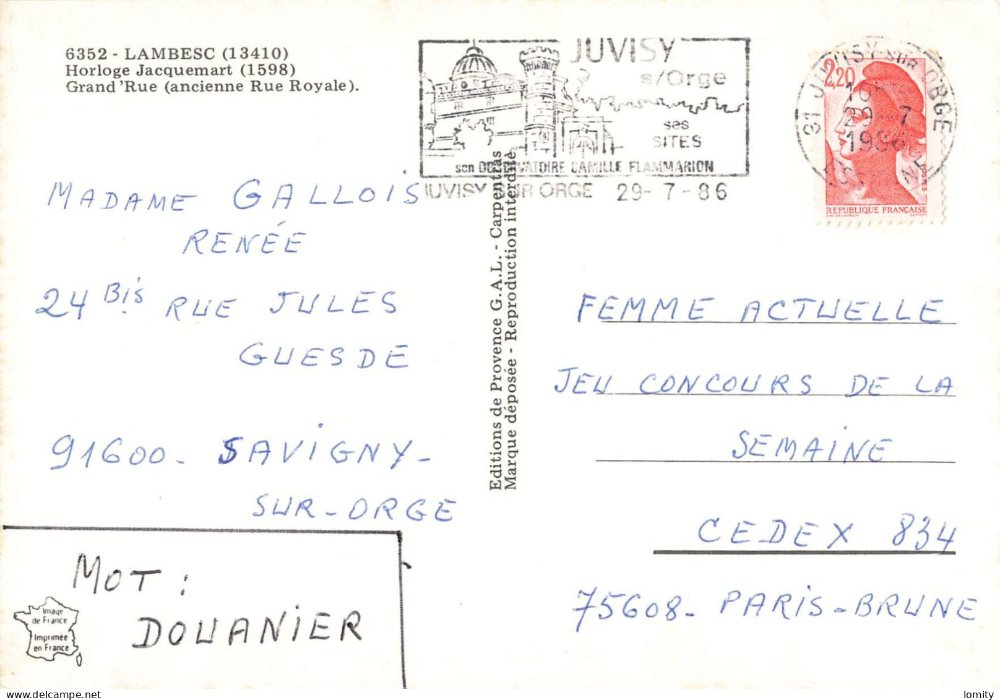 6352 - LAMBESC (13410)
Horloge Jacquemart (1598)
Grand'Rue (ancienne Rue Royale).
JUVISY
s/Orge
ses
SITES
son OBSERVATOIRE CAMILLE FLAMMARION
JUVISY SUR ORGE 29-7-86
91 JUVISY SUR ORGE
29-7
2,20
REPUBLIQUE FRANÇAISE
MADAME GALLOIS
RENÉE
24 Bis RUE JULES
GUESDE
91600 - SAVIGNY-
SUR-ORGE
MOT :
DOUANIER
Image
de France
Imprimée
en France
Editions de Provence G.A.L. - Carpentras
Marque déposée - Reproduction interdite
FEMME ACTUELLE
JEU CONCOURS DE LA
SEMAINE
CEDEX 834
75608 - PARIS-BRUNE
lomity